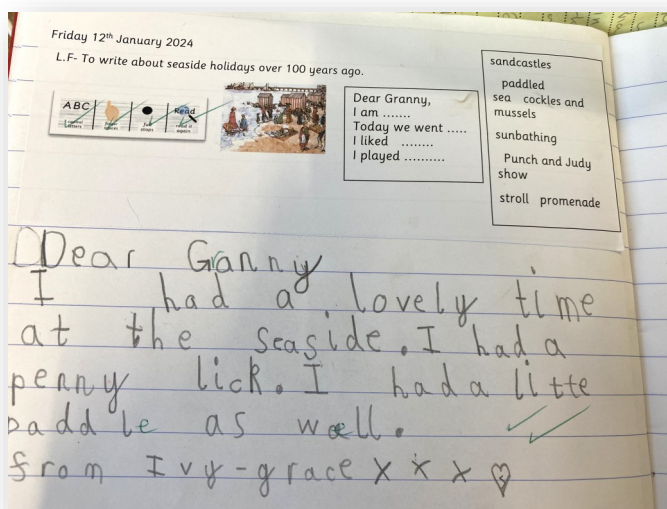 Friday 12th January 2024
L.F- To write about seaside holidays over 100 years ago.
ABC
Read
Dear Granny,
I am .......
Today we went .....
I liked ........
I played ..........
sandcastles
paddled
sea cockles and
mussels
sunbathing
Punch and Judy
show
stroll promenade
Dear Granny
I had a lovely time
at the seaside. I had a
penny lick. I had a litte
paddle as well.
from Ivy-grace x x x